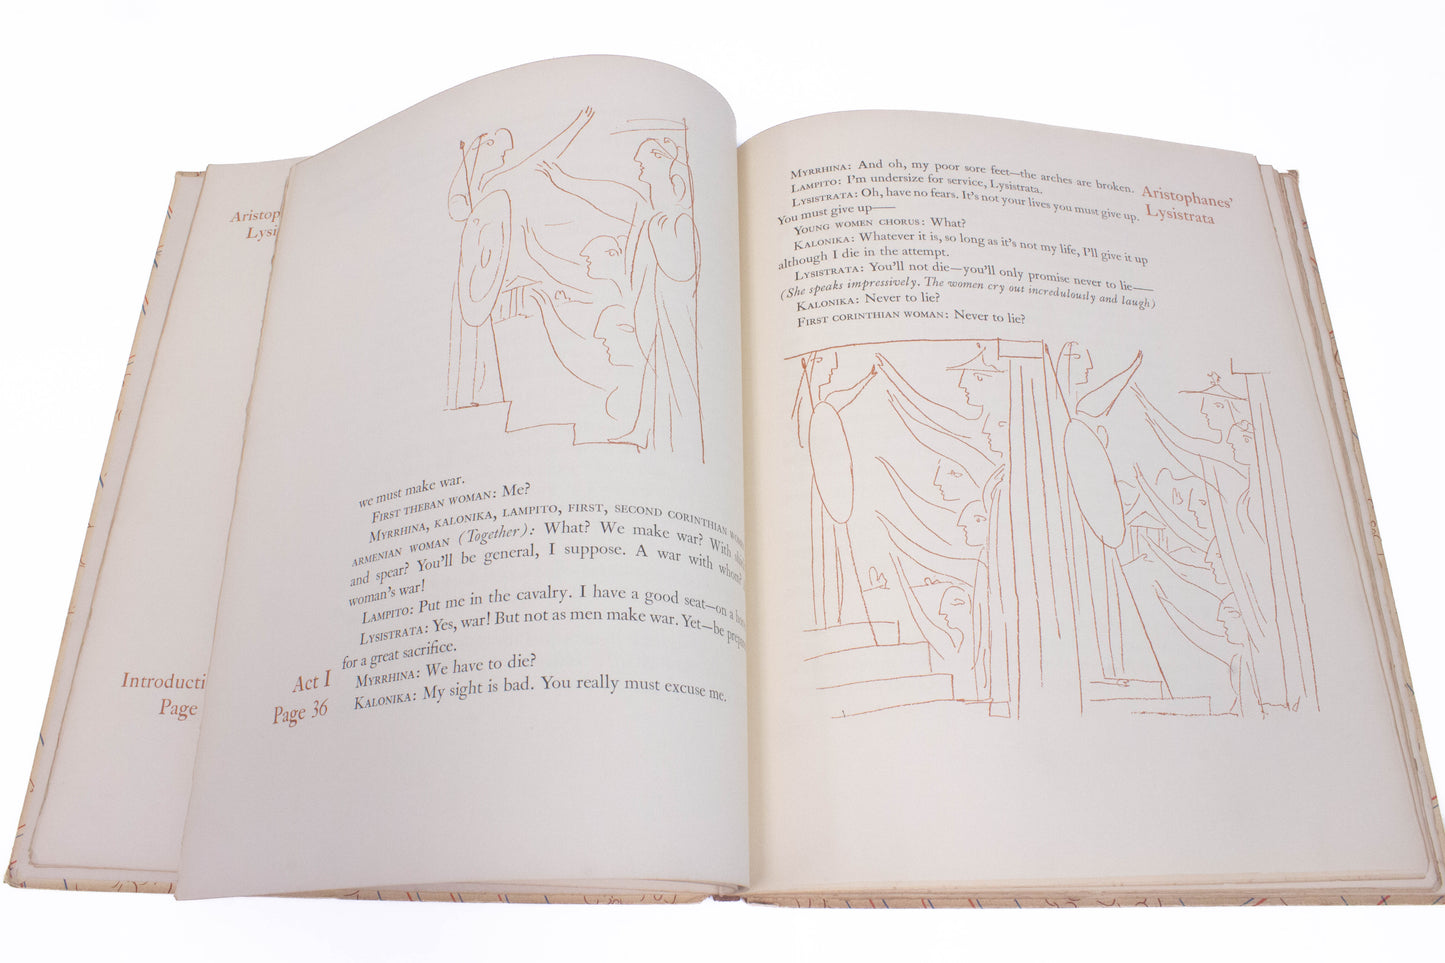 Aristop
Lysi
Introducti
Page
we must make war.
FIRST THEBAN WOMAN: Me?
MYRRHINA, KALONIKA, LAMPITO, FIRST, SECOND CORINTHIAN
ARMENIAN WOMAN (Together): What? We make war? With
and spear? You'll be general, I suppose. A war with whom?
woman's war!
LAMPITO: Put me in the cavalry. I have a good seat—on a
LYSISTRATA: Yes, war! But not as men make war. Yet—be
for a great sacrifice.
MYRRHINA: We have to die?
KALONIKA: My sight is bad. You really must excuse me.
Act I
Page 36
MYRRHINA: And oh, my poor sore feet—the arches are broken.
LAMPITO: I'm undersize for service, Lysistrata.
LYSISTRATA: Oh, have no fears. It's not your lives you must give up.
You must give up——
YOUNG WOMEN CHORUS: What?
KALONIKA: Whatever it is, so long as it's not my life, I'll give it up
although I die in the attempt.
LYSISTRATA: You'll not die—you'll only promise never to lie——
(She speaks impressively. The women cry out incredulously and laugh)
KALONIKA: Never to lie?
FIRST CORINTHIAN WOMAN: Never to lie?
Aristophanes'
Lysistrata